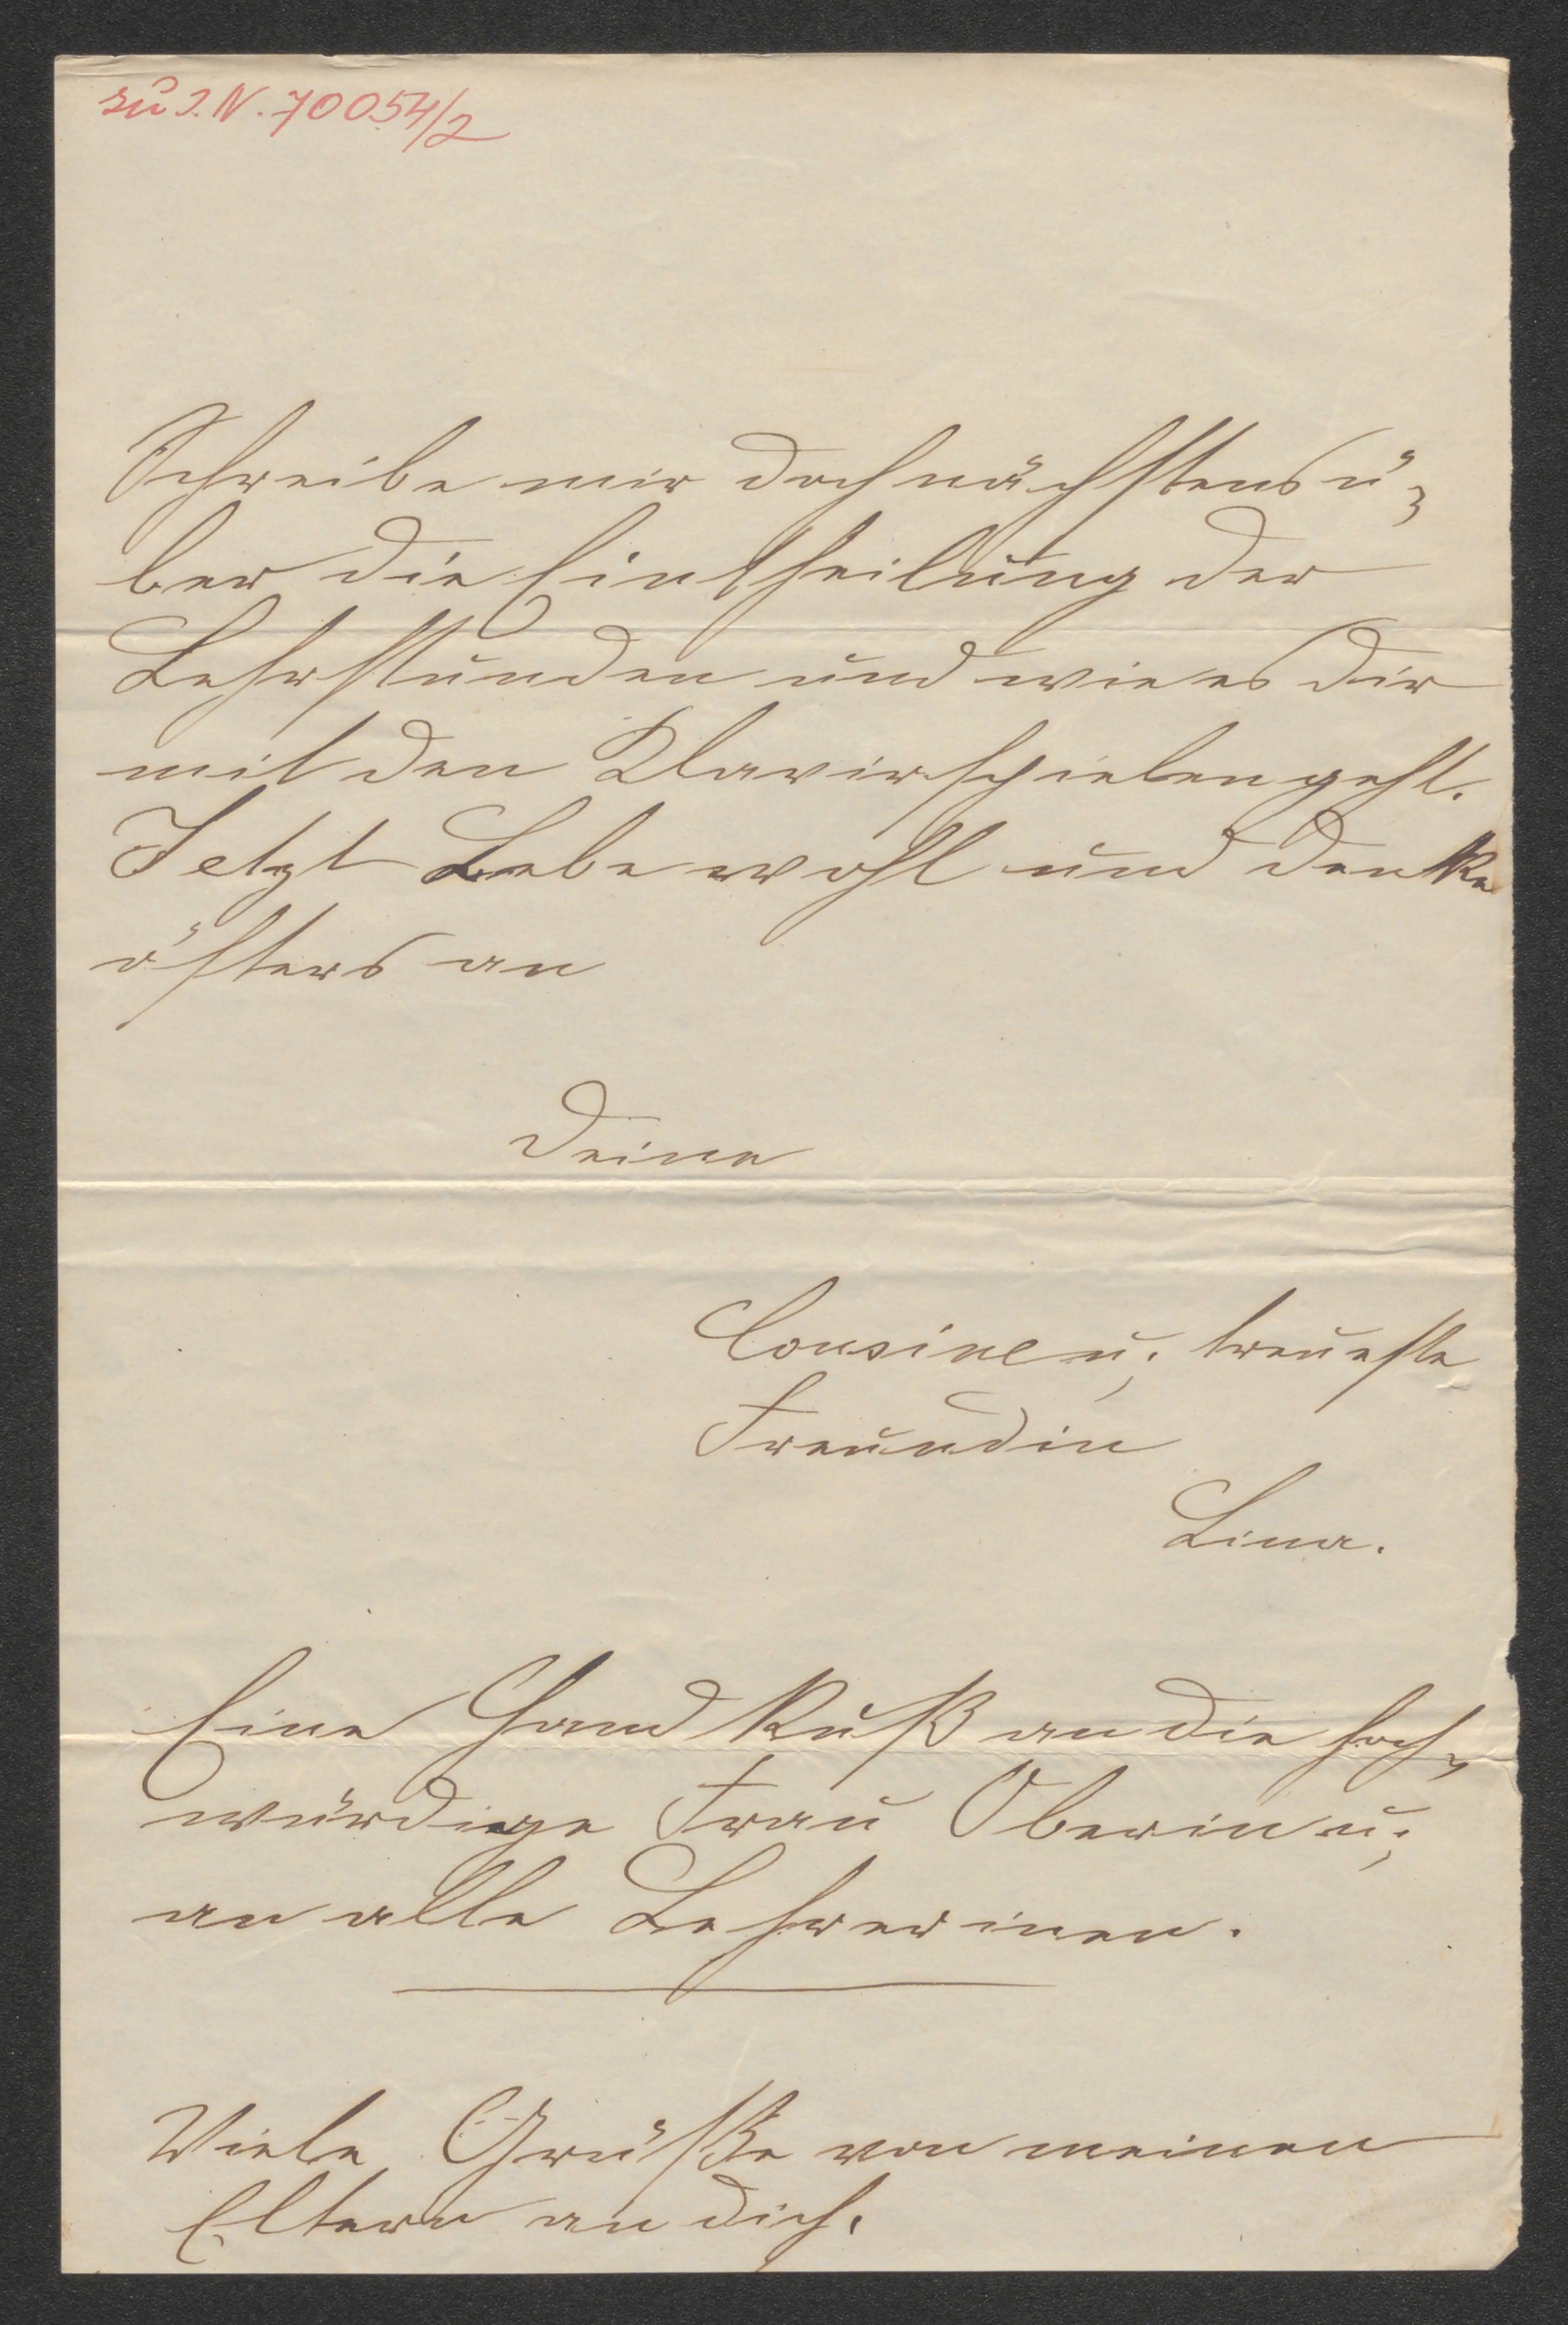 zu I.N. 70054/2
Schreibe mir doch nächstens ü-
ber die Eintheilung der
Lehrstunden und wie es dir
mit den Klavirspielen geht.
Jetzt Lebe wohl und denke
öfters an
Deine
Cousine u. treueste
Freundin
Lina.
Eine Hand Kuß an die hoch-
würdige Frau Oberin u.
an alle Lehrerinen.
Viele Grüße von meinen
Eltern an dich.